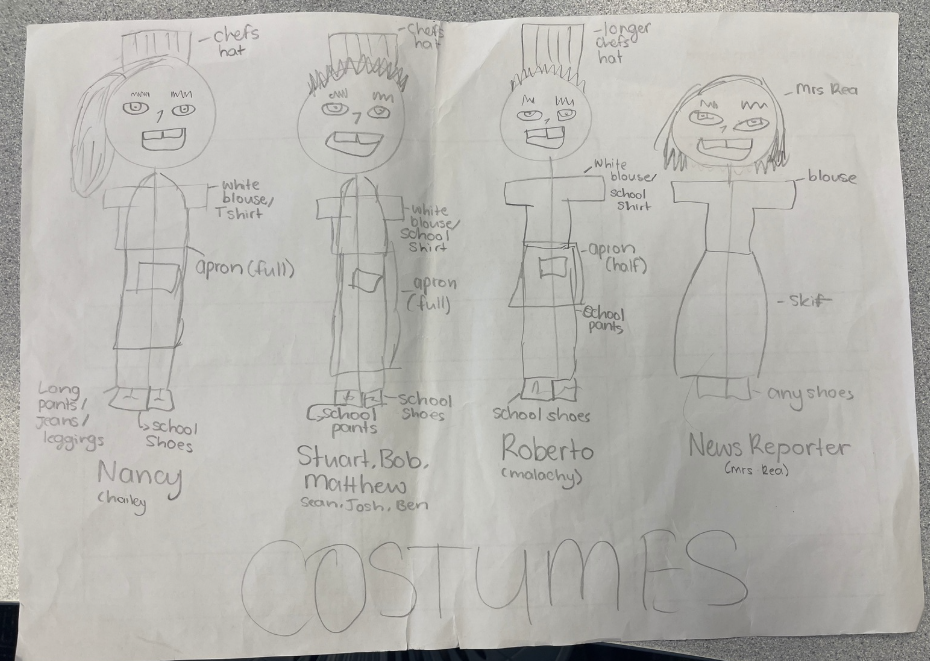 chefs
hat
white
blouse/
Tshirt
apron (full)
Long
pants/
jeans/
leggings
school
shoes
Nancy
chefs
hat
white
blouse/
school
shirt
apron
(full)
school
shoes
school
pants
Stuart, Bob,
Matthew
Sean, Josh, Ben
longer
chefs
hat
white
blouse/
school
shirt
apron
(half)
school
pants
school shoes
Roberto
(malachy)
Mrs Rea
blouse
any shoes
News Reporter
(mrs Rea)
COSTUMES